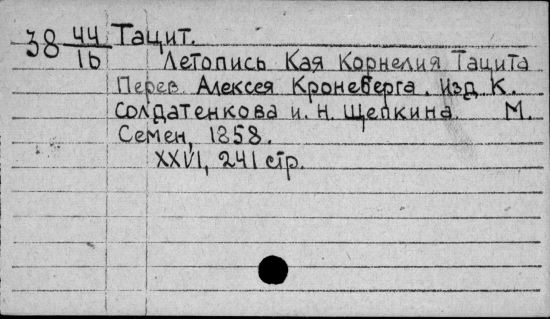 38 44/16 Тацит.
Летопись Кая Корнелия Тацита
Перев Алексея Кронеберга. Изд К.
Солдатенкова и. Н. Щепкина. М.
Семен, 1858.
XXVI, 241 стр.